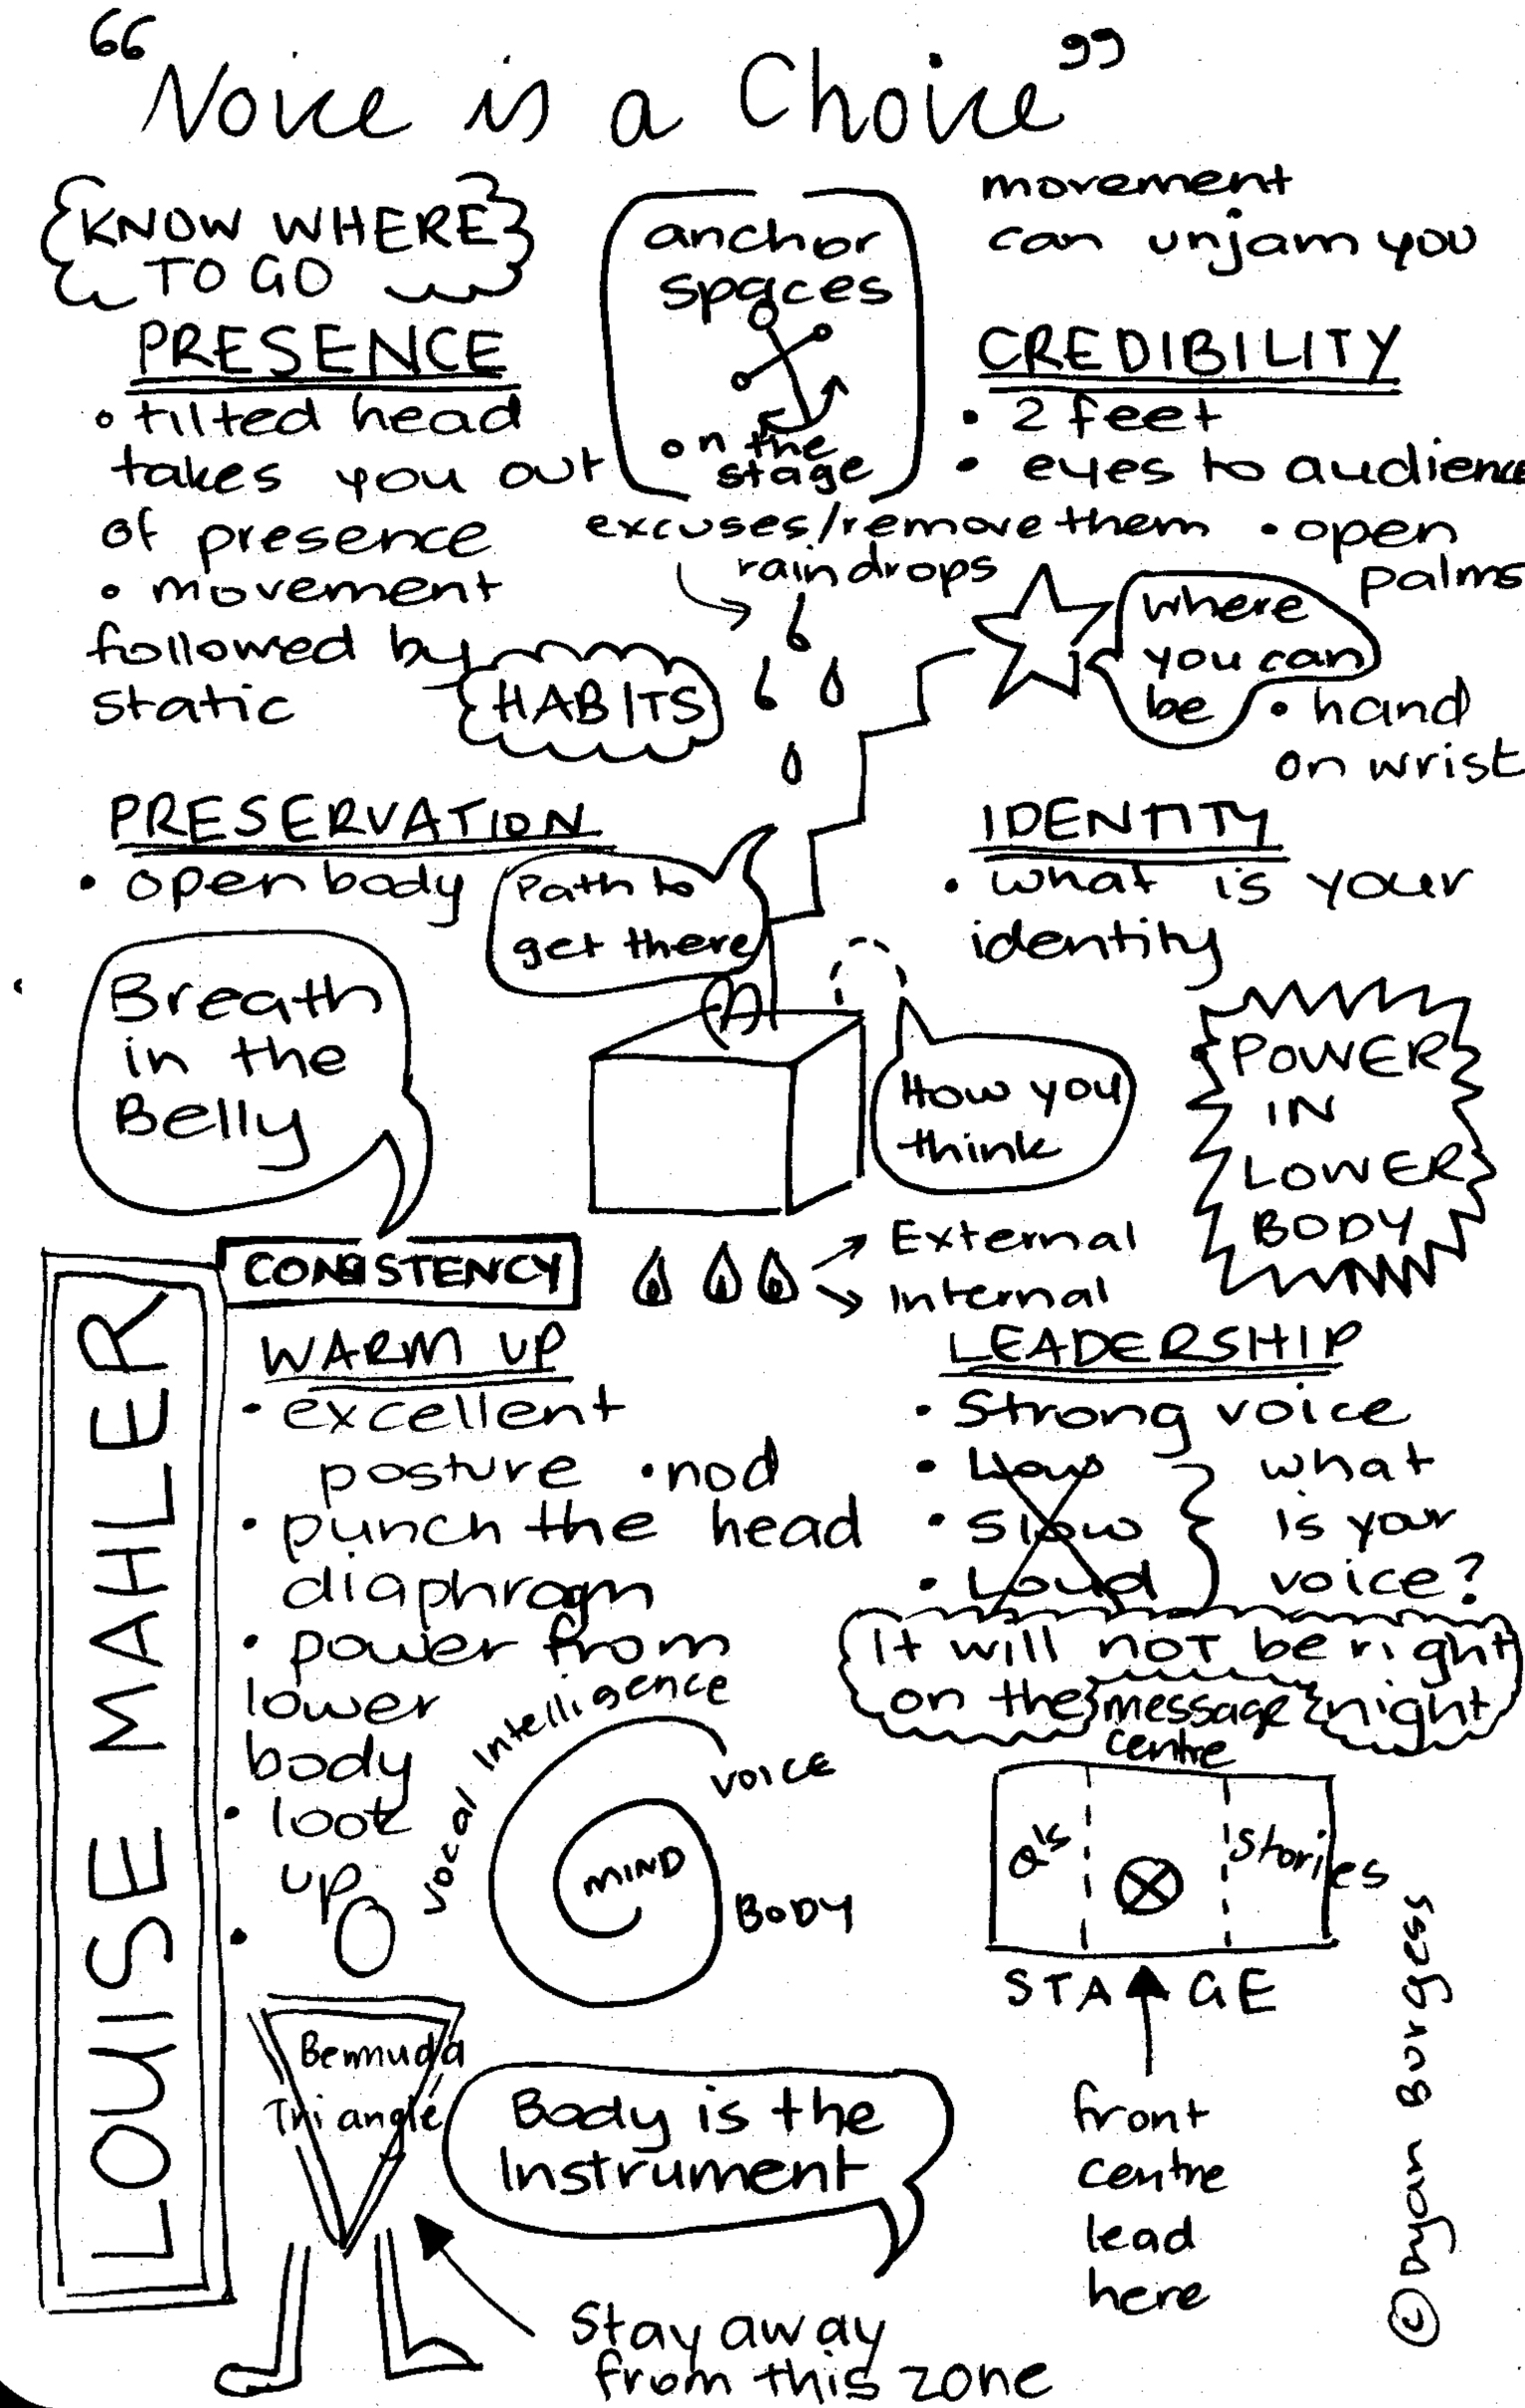 “Voice is a Choice”
KNOW WHERE
TO GO
anchor
spaces
on the
stage
movement
can unjam you
PRESENCE
• tilted head
takes you out
of presence
• movement
followed by
static
CREDIBILITY
• 2 feet
• eyes to audience
• open
palms
• hand
on wrist
excuses/remove them
raindrops
where
you can
be
HABITS
PRESERVATION
• open body
Path to
get there
IDENTITY
• what is your
identity
Breath
in the
Belly
How you
think
POWER
IN
LOWER
BODY
External
Internal
CONSISTENCY
LOUISE MAHLER
WARM UP
• excellent
posture • nod
• punch the head
diaphragm
• power from
lower
body
• look
up
•
LEADERSHIP
• Strong voice
• Low
• Slow
• Loud
what
is your
voice?
It will not be right
on the night
message
centre
Vocal Intelligence
VOICE
MIND
BODY
Q's
Stories
STAGE
front
centre
lead
here
Bermuda
Triangle
Body is the
Instrument
Stay away
from this zone
© Dyan Burgess